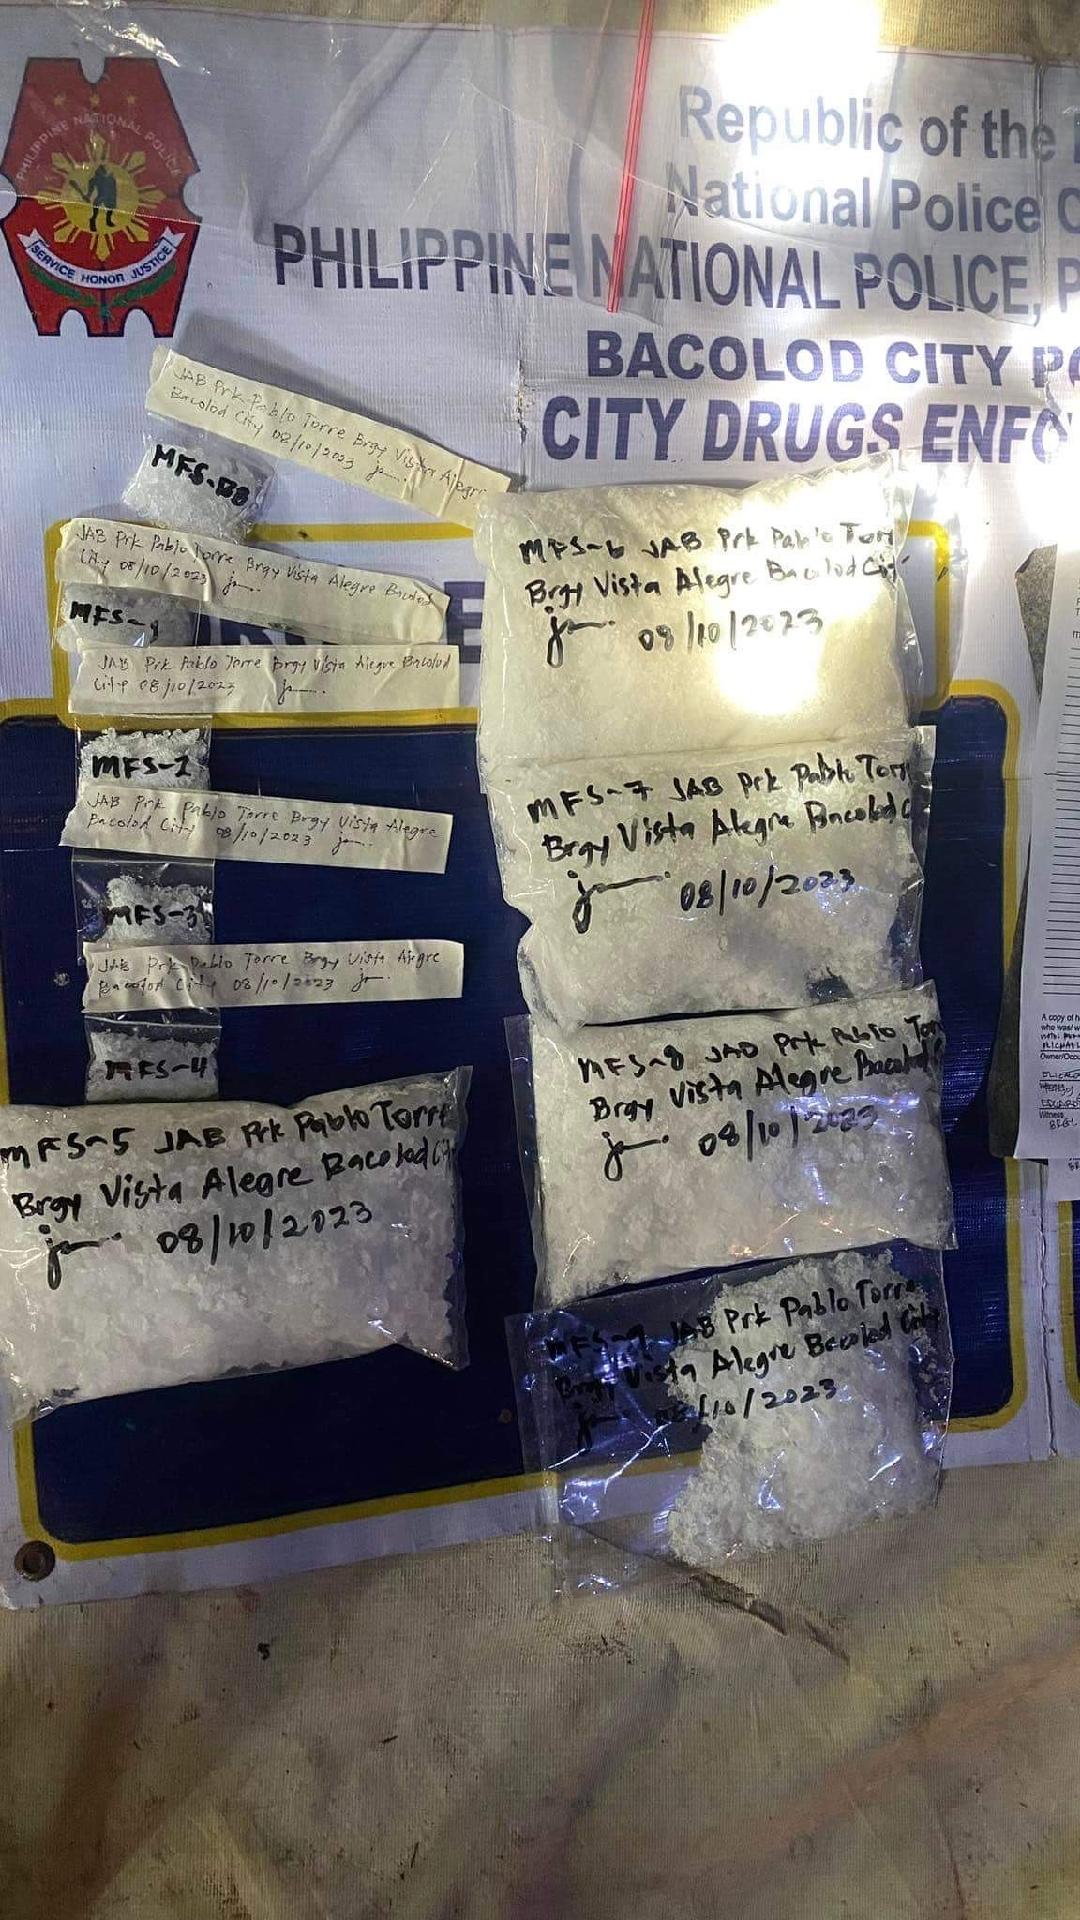 PHILIPPINE NATIONAL POLICE
SERVICE HONOR JUSTICE
Republic of the
National Police
PHILIPPINE NATIONAL POLICE,
BACOLOD CITY
CITY DRUGS
JAB Prk Pablo Torre Brgy Vista Alegre
Bacolod City 08/10/2023
MFS-BB
JAB Prk Pablo Torre Brgy Vista Alegre Bacolod
City 08/10/2023
MFS-1
JAB Prk Pablo Torre Brgy Vista Alegre Bacolod
City 08/10/2023
MFS-2
JAB Prk Pablo Torre Brgy Vista Alegre
Bacolod City 08/10/2023
MFS-3
JAB Prk Pablo Torre Brgy Vista Alegre
Bacolod City 08/10/2023
MFS-4
MFS-5 JAB Prk Pablo Torre
Brgy Vista Alegre Bacolod
08/10/2023
MFS-6 JAB Prk Pablo Torr
Brgy Vista Alegre Bacolod City
08/10/2023
MFS-7 JAB Prk Pablo Torr
Brgy Vista Alegre Bacolod C
08/10/2023
MFS-8 JAB Prk Pablo Torr
Brgy Vista Alegre Bacolod C
08/10/2023
MFS-9 JAB Prk Pablo Torre
Brgy Vista Alegre Bacolod City
08/10/2023
A copy of
Witness